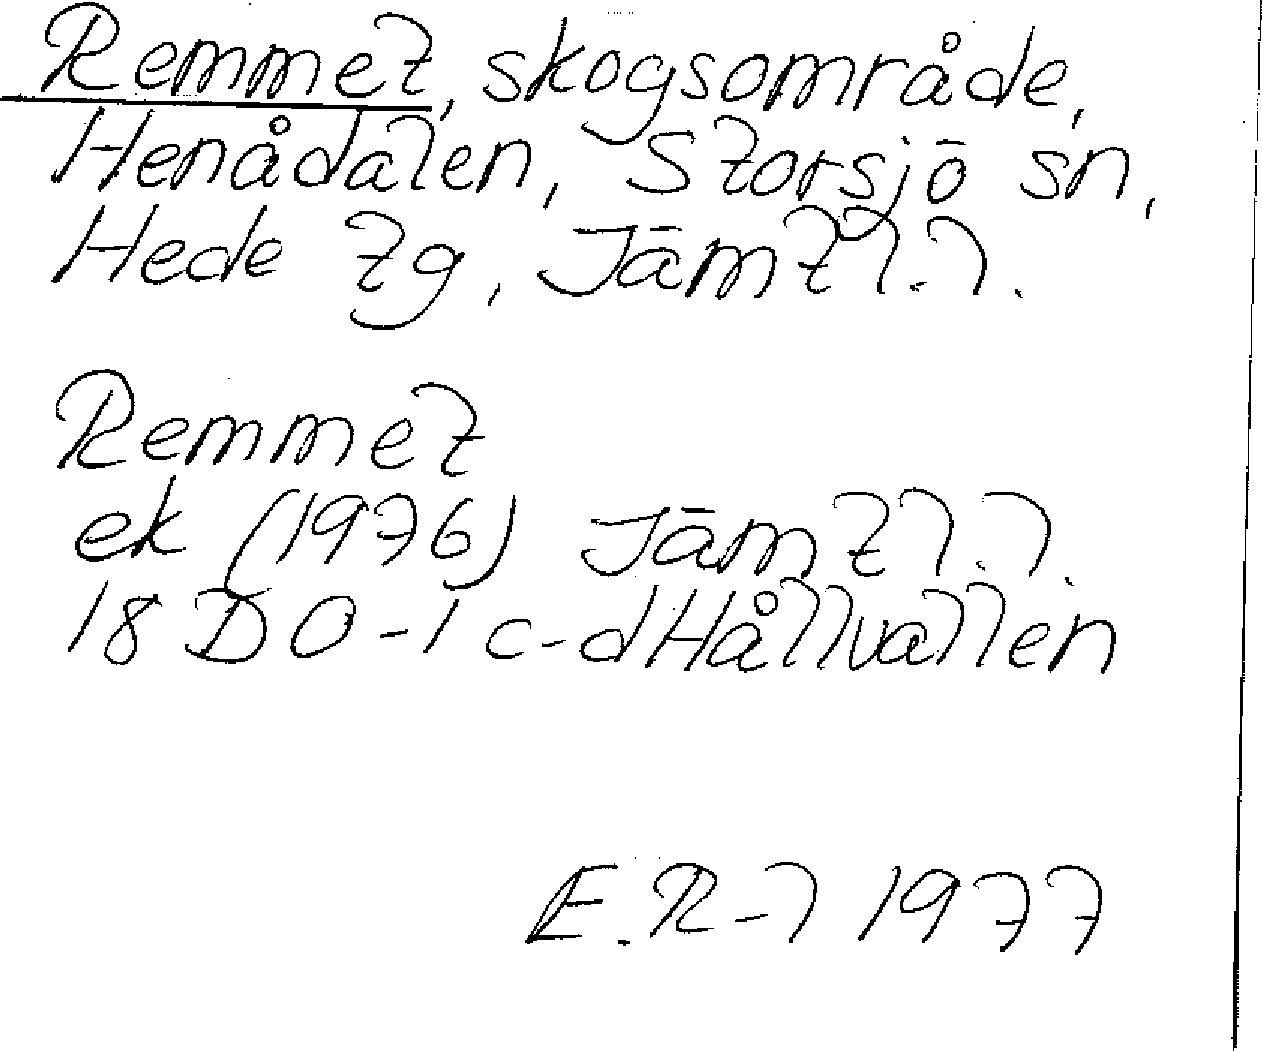 Remmet, skogsområde,
Henådalen, Storsjö sn,
Hede tg, Jämtl. l.
Remmet
ek (1976) Jämtl. l.
18 D 0-1 c-d Hållvallen
E. R-l 1977